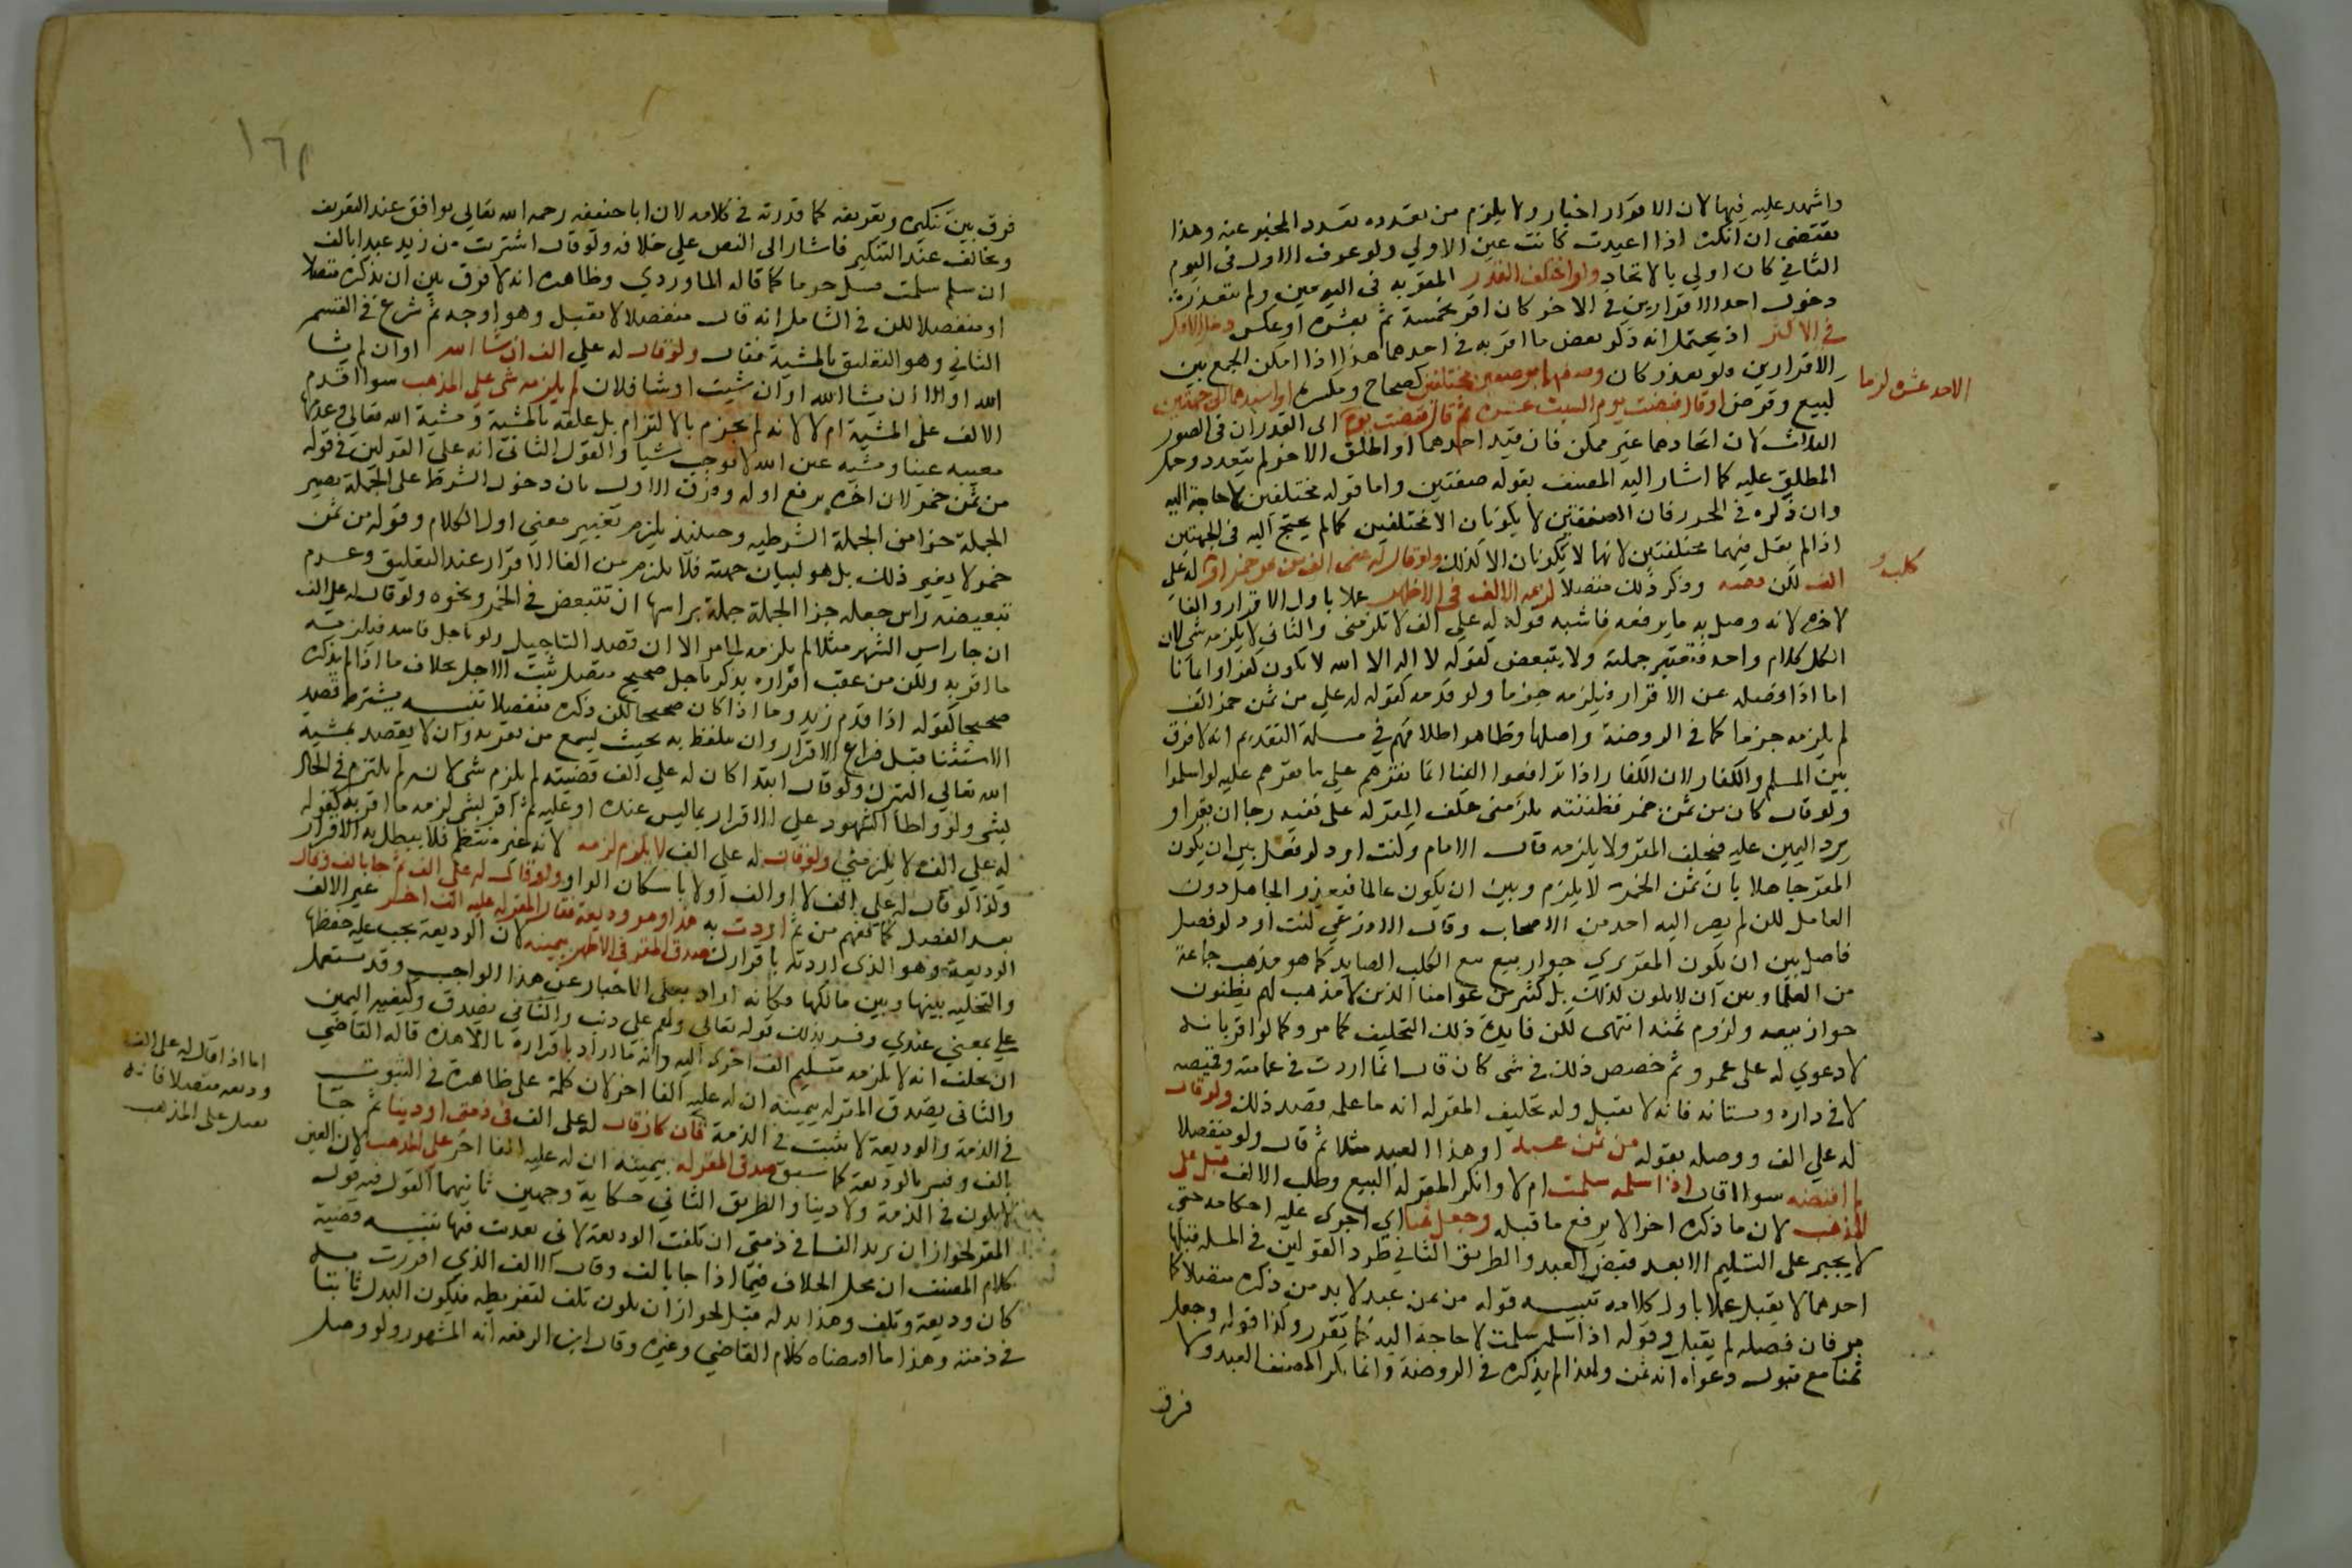 واشهد عليه فيها لان الاقرار اخبار ولا يلزم من تعدده تعدد المخبر عنه وهذا
يقتضي ان النكرة اذا اعيدت كانت عين الاولي ولو عرف الاول في اليوم
الثاني كان اولي بالاتحاد ولو اختلف القدر المقر به في اليومين ولم يتعذر
دخول احد الاقرارين في الاخر كان اقر بخمسة ثم بعشرة او عكس دخل الاقل
في الاكثر اذ يحتمل انه ذكر بعض ما اقر به في احدهما هذا اذا امكن الجمع بين
الاقرارين ولو تعذر كان وصفهما بوصفين مختلفين كصحاح ومكسرة او اسندهما الى جهتين
الاحد عشر لزما
كبيع وقرض او قال قبضت يوم السبت عشرة ثم قال قبضت يوم الى القدران في الصور
الثلاث لان اتحادهما غير ممكن فان قيد احدهما واطلق الاخر لم يتعدد وحمل
المطلق عليه كما اشار اليه المصنف بقوله صفتين واما قوله مختلفين لا حاجة اليه
وان ذكره في المحرر فان الصفتين لا يكونان الا مختلفين كما لم يحتج اليه في الجهتين
اذ لم يقل فيهما مختلفتين لانهما لا يكونان الا كذلك ولو قال له عندي الف من ثمن خمر او له علي
كلب او
الف لكن قضيته وذكر ذلك متصلا لزمه الالف في الاظهر عملا باول الاقرار والغاء
لاخره لانه وصل به ما يرفعه فاشبه قوله له علي الف لا تلزمني والثاني لا يلزمه شي لان
الكل كلام واحد فتعتبر جملته ولا يتبعض كقوله لا اله الا الله لا يكون كفرا وايمانا
اما اذا فصله عن الاقرار فيلزمه جزما ولو قدمه كقوله له علي من ثمن خمر الف
لم يلزمه جزما كما في الروضة واصلها وظاهر اطلاقهم في مسلة التقديم انه لا فرق
بين المسلم والكافر لان الكفار اذا ترافعوا الينا انما نقرهم علي ما نقرهم عليه لو اسلموا
ولو قال كان من ثمن خمر فظننته يلزمني حلف المقر له على نفيه رجا ان يقر او
يرد اليمين عليه فيحلف المقر ولا يلزمه قال الامام وكنت اود لو فصل بين ان يكون
المقر جاهلا بان ثمن الخمر لا يلزم وبين ان يكون عالما فيعذر الجاهل دون
العامل لكن لم يصر اليه احد من الاصحاب وقال الاوزعي كنت اود لو فصل
فاصل بين ان يكون المقر يري جواز بيع الكلب الصايد كما هو مذهب جماعة
من العلما وبين ان لا يكون لذلك بل كثير من عوامنا الذين لا مذهب لهم يظنون
جواز بيعه ولزوم ثمنه انتهى لكن فايدة ذلك التحليف كما مر وكما لو اقر بانه
لا دعوي له على عمرو ثم خصص ذلك في شي كان قال انما اردت في عمامته وقميصه
لا في داره وبستانه فانه لا يقبل وله تحليف المقر له انه ما علم قصد ذلك ولو قال
له علي الف ووصله بقوله من ثمن عبد او هذا العبد مثلا ثم قال ولو منفصلا
لم اقبضه سواا قال اذا سلمه سلمت ام لا وانكر المقر له البيع وطلب الالف قبل على
المذهب لان ما ذكره اخرا لا يرفع ما قبله وجعل ثمنا اي اجري عليه احكامه حتى
لا يجبر على التسليم الا بعد قبض العبد والطريق الثاني طرد القولين في المسلة قبلها
احدهما لا يقبل عملا باول كلامه تنبيه قوله من ثمن عبد لا بد من ذكره متصلا كما
مر فان فصله لم يقبل وقوله اذا سلم سلمت لا حاجة اليه كما تقرر وكذا قوله وجعل
ثمنا مع قبول دعواه انه ثمن ولهذا لم يذكره في الروضة وانما نكر المصنف العبد ولا
فرق
فرق بين تنكيره وتعريفه كما قدرته في كلامه لان ابا حنيفة رحمه الله تعالي يوافق عند التعريف
ويخالف عند التنكير فاشار الى النص علي خلافه ولو قال اشتريت من زيد عبدا بالف
ان سلم سلمت قبل جزما كما قاله الماوردي وظاهره انه لا فرق بين ان يذكره متصلا
او منفصلا لكن في الشامل انه قال منفصلا لا يقبل وهو اوجه ثم شرع في القسم
الثاني وهو التعليق بالمشية فقال ولو قال له علي الف ان شا الله او ان لم يشا
الله او الا ان يشا الله او ان شيت او شا فلان لم يلزمه شي علي المذهب سواا قدم
الالف على المشية ام لا لانه لم يجزم بالالتزام بل علقه بالمشية ومشية الله تعالي وعدمها
مغيبه عينا ومشية غير الله لا توجب شيا والقول الثاني انه على القولين في قوله
من ثمن خمر لان اخره يرفع اوله وفرق الاول بان دخول الشرط على الجملة يصير
الجملة جزا من الجملة الشرطيه وحينئذ يلزم تغيير معني اول الكلام وقوله من ثمن
خمر لا يغير ذلك بل هو لبيان جهته فلا يلزم من الغا الاقرار عند التعليق وعدم
تبعيضه راس جعله جزا الجملة جملة براسها ان تتبعض في الخمر ونحوه ولو قال له علي الف
ان جا راس الشهر مثلا لم يلزمه لما مر الا ان قصد التاجيل ولو باجل فاسد فيلزمه
ما اقر به ولكن من عقب اقراره بذكر باجل صحيح متصل ثبت الاجل بخلاف ما اذا لم يذكره
صحيحا كقوله اذا قدم زيد وما اذا كان صحيحا لكن ذكره منفصلا تنبيه يشترط قصد
الاستثنا قبل فراغ الاقرار وان يتلفظ به بحيث يسمع من بقربه وان لا يقصد بمشية
الله تعالي التبرك ولو قال ابتدا كان له علي الف قضيته لم يلزم شي لانه لم يلتزم في الحال
بشي ولو واطا الشهود علي الاقرار بما ليس عنده او عليه ثم اقر بشي لزمه ما اقر به كقوله
له علي الف لا يلزمني ولو قال له علي الف لا يلزم لزمه لانه غير منتظم فلا يبطل به الاقرار
وكذا لو قال له علي الف لا او الف اولا باسكان الواو ولو قال له علي الف ثم جا بالف وقال
اردت به هذا وهو وديعة فقال المقر له عليه الف اخر غير الالف
الوديعة وهو الذي اردته باقرارك صدق المقر في الاظهر بيمينه لان الوديعة يجب عليه حفظها
والتخلية بينها وبين مالكها فكانه اراد بعلي الاخبار عن هذا الواجب وقد تستعمل
علي بمعني عندي وفسر بذلك قوله تعالي ولهم علي ذنب والثاني يصدق وكيفية اليمين
ان يحلف انه لا يلزمه تسليم الف اخرى اليه وانه ما اراد باقراره الا هذه قاله القاضي
والثاني يصدق المقر له بيمينه ان له عليه الفا اخر لان كلمة على ظاهرة في الثبوت
في الذمة والوديعة لا تثبت في الذمة فان كان قال له علي الف في ذمتي او دينا ثم جا
بالف وفسر بالوديعة كما سبق صدق المقر له بيمينه ان له عليه الفا اخر علي المذهب لان العين
لا يكون في الذمة ولا دينا والطريق الثاني حكاية وجهين ثانيهما القول فيه قول
المقر لجواز ان يريد الفا في ذمتي ان تلفت الوديعة لاني تعديت فيها تنبيه قضية
كلام المصنف ان محل الخلاف فيما اذا جا بالف وقال الالف الذي اقررت به
كان وديعة وتلف وهذا بدله قبل لجواز ان يكون تلف لتفريطه فيكون البدل ثابتا
في ذمته وهذا ما اقتضاه كلام القاضي وغيره وقال ابن الرفعه انه المشهور ولو وصل
اما اذا قال له علي الف
وديعه متصلا فانه
يقبل على المذهب